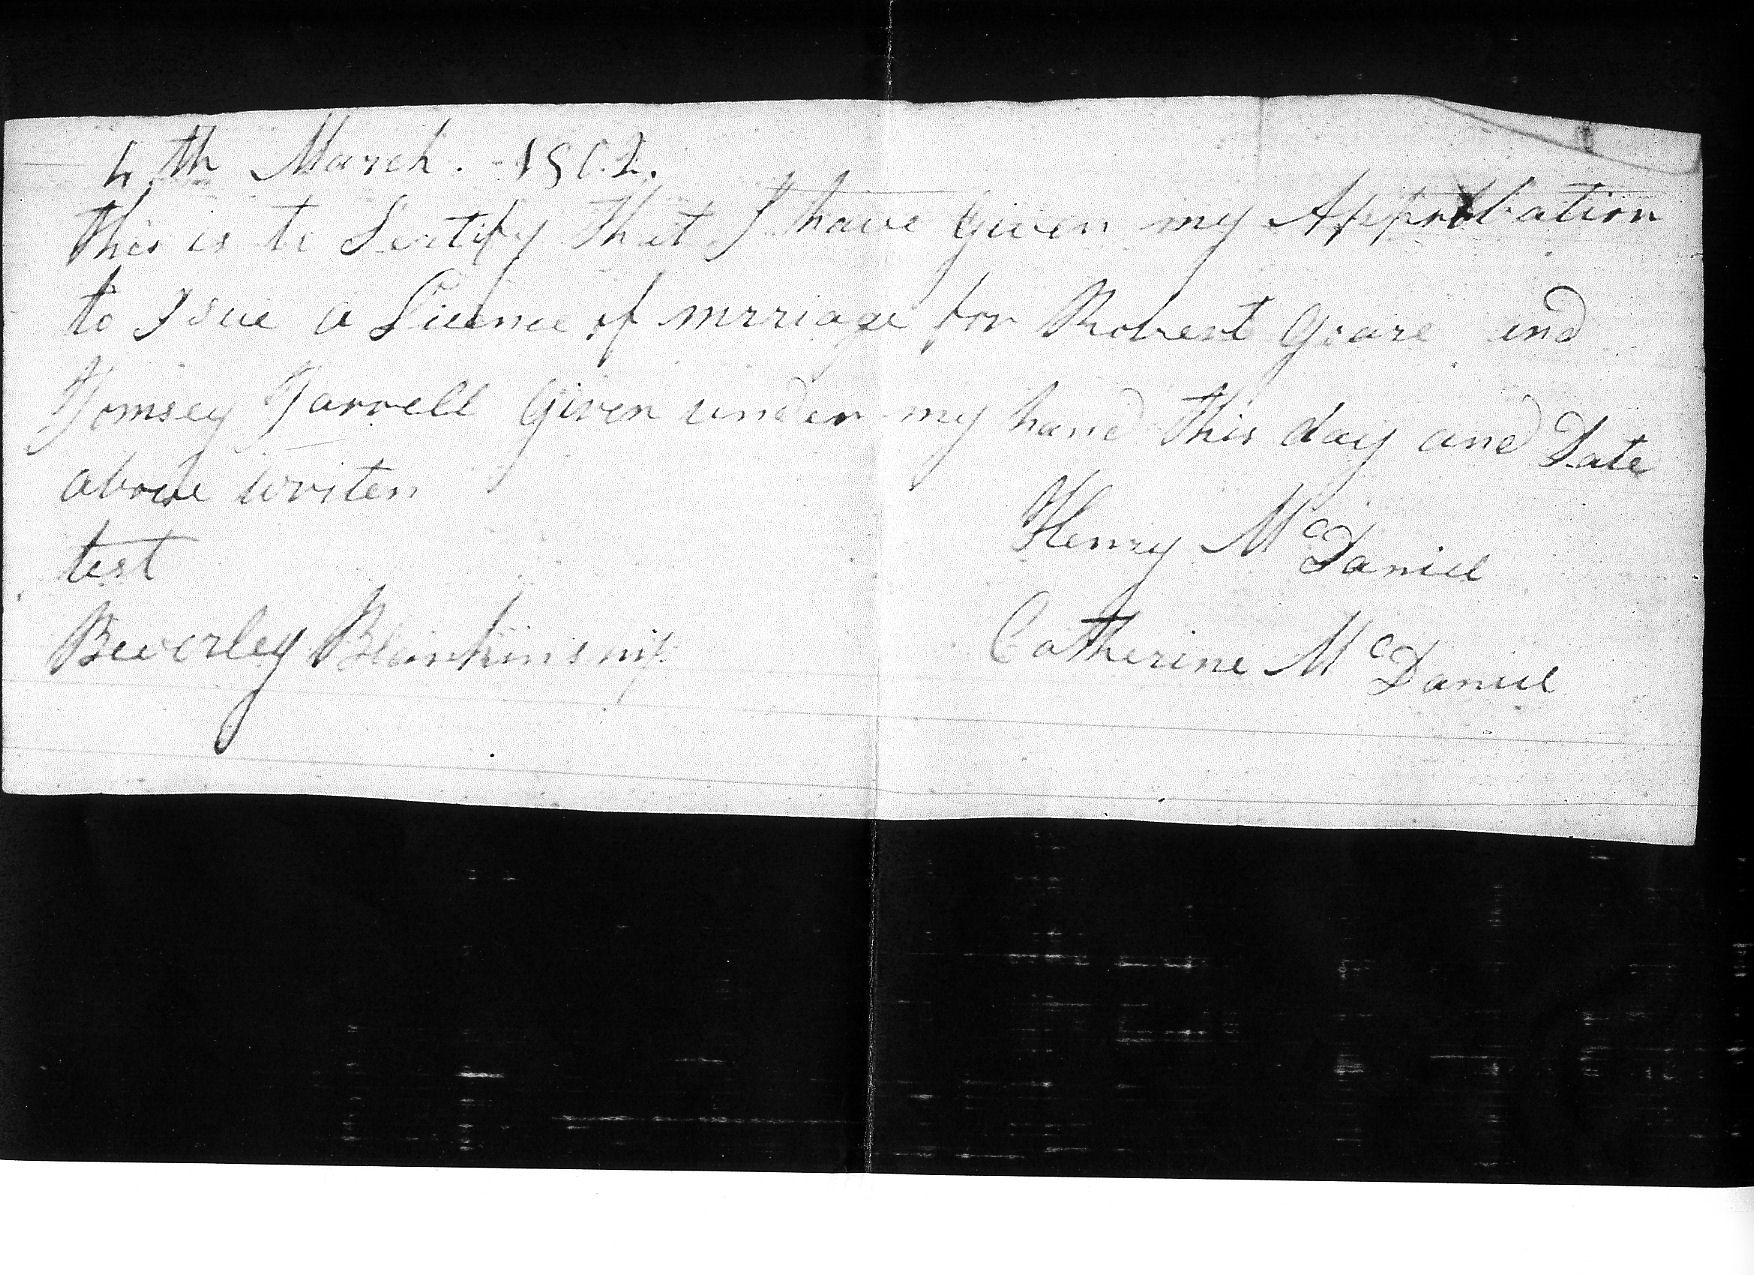 4th March. 1802.
this is to Sertify that I have given my Approbation
to Isue a Licence of mrriage for Robert Geare and
Tomsey Farrell Given under my hand this day and Date
above writen
test
Henry McDaniel
Beverley Blankinship
Catherine McDaniel